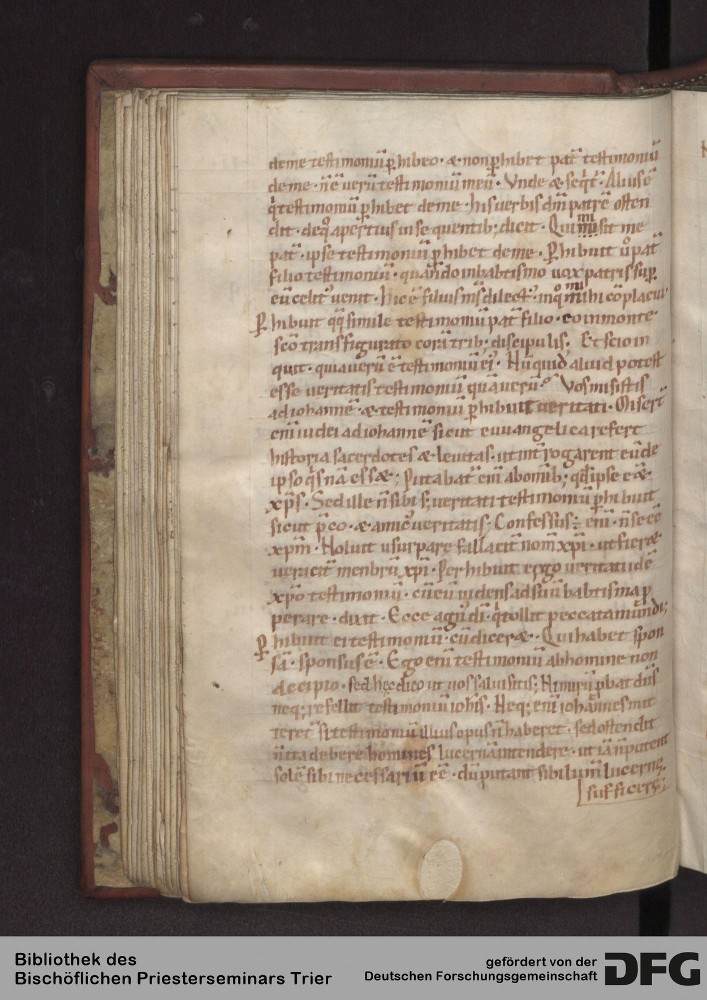 deme testimoniū ꝑhibeo · & non ꝑhibet pat̄ testimoniū
deme · n̄ ē verū testimoniū meū · Vnde & seqt̄ · Alius ē
q̄ testimoniū ꝑhibet deme · his verbis dm̄ patrē osten
dit · deq° apertius in se quentib; dicit · Qui misit me
pat̄ · ipse testimoniū ꝑhibet deme · ꝑhibuit ū° pat̄
filio testimoniū · quando inbabtismo vox patris sup̄
eū celit' venit · hic ē filius ms̄ dilect' · inq° mihi cōplacui
ꝑhibuit qq; simile testimoniū pat̄ filio · eo inmonte
scō transfigurato corā trib; discipulis · Et scio in
quit · quia verū ē testimoniū ei' · Nūquid aliud potest
esse veritatis testimoniū quā verū · Vos misistis
ad iohannē · & testimoniū ꝑhibuit veritati · Misert̄
enī iudei ad iohannē sicut euuangelica refert
historia sacerdotes & leuitas · ut int̄rogarent eūde
ipso q̄s nā ess& ; putabat̄ enī abomīb; qd̄ ipse e&
xp̄s · Sed ille n̄ sibi s; veritati testimoniū ꝑhibuit
sicut p̄co · & amic' veritatis · Confessus ē enī · n̄ se eē
xp̄m · Noluit usurpare fallacit̄ nom̄ xpi · ut fier&
veracit̄ menbrū xpi · Perhibuit ergo veritati idē
xp̄o testimoniū · cū eū uidens ad suū babtisma p
perare · dixit · Ecce agn' dī · q̄ tollit peccata mundi ;
ꝑhibuit ei testimoniū · cū dicer& · Qui habet spon
sā · sponsus ē · Ego enī testimoniū abhomine non
accipio · sed hęc dico ut vos salui sitis ; Nimirū ꝓbat dn̄s
neq; refellit testimoniū iohīs · Neq; enī iohannes mit
teret̄ si testimoniū illius opus n̄ haberet · sed ostendit
n̄ ita debere homines lucernā intendere · ut iā n̄ putent
solē sibi necessariū eē · dū putant sibi lum̄ lucernę
sufficere ;
Bibliothek des
Bischöflichen Priesterseminars Trier
gefördert von der
Deutschen Forschungsgemeinschaft
DFG